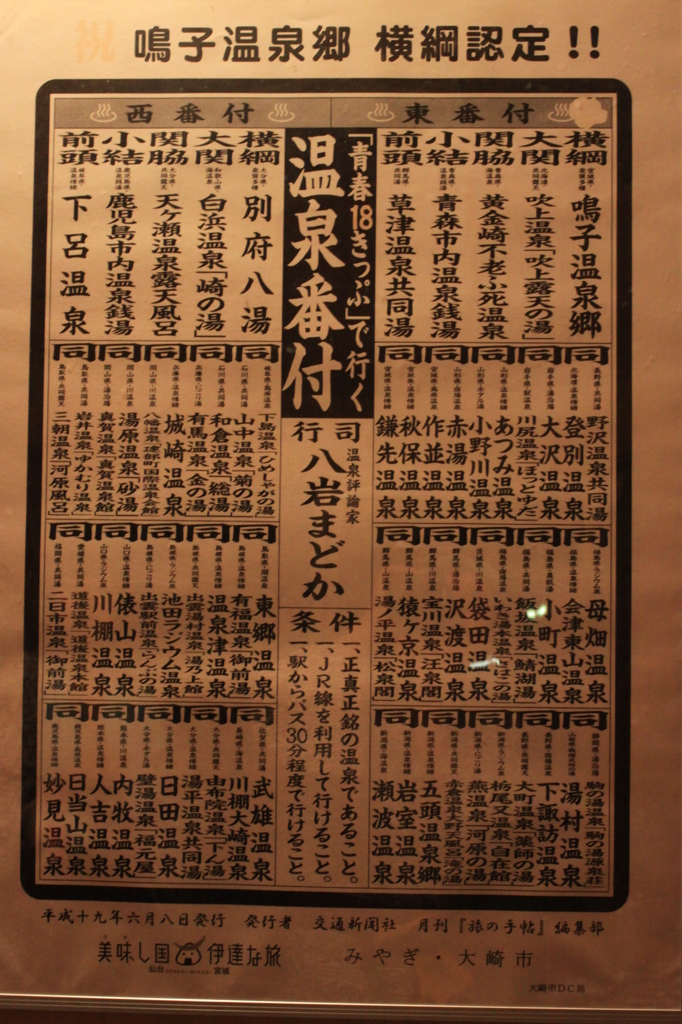 祝 鳴子温泉郷 横綱認定!!
東番付
西番付
「青春18きっぷ」で行く
温泉番付
行司
温泉評論家
八岩まどか
条件
一、正真正銘の温泉であること。
一、JR線を利用して行けること。
一、駅からバス30分程度で行けること。
横綱 鳴子温泉郷
大関 吹上温泉「吹上露天の湯」
関脇 黄金崎不老不死温泉
小結 青森市内温泉銭湯
前頭 草津温泉共同湯
同 野沢温泉共同湯
同 登別温泉
同 大沢温泉
同 川尻温泉「ほっとゆだ」
同 あつみ温泉
同 小野川温泉
同 赤湯温泉
同 作並温泉
同 秋保温泉
同 鎌先温泉
同 母畑温泉
同 会津東山温泉
同 小町温泉
同 飯坂温泉「鯖湖湯」
同 いわき湯本温泉「さはこの湯」
同 袋田温泉
同 沢渡温泉
同 宝川温泉「汪泉閣」
同 猿ケ京温泉
同 湯ノ平温泉「松泉閣」
同 駒の湯温泉「駒の湯源泉荘」
同 湯村温泉
同 下諏訪温泉
同 大町温泉「薬師の湯」
同 栃尾又温泉「自在館」
同 燕温泉「河原の湯」
同 赤倉温泉「大野天風呂滝の湯」
同 五頭温泉郷
同 岩室温泉
同 瀬波温泉
横綱 別府八湯
大関 白浜温泉「崎の湯」
関脇 天ヶ瀬温泉露天風呂
小結 鹿児島市内温泉銭湯
前頭 下呂温泉
同 下島温泉「ひめしゃがの湯」
同 山中温泉「菊の湯」
同 和倉温泉「総湯」
同 有馬温泉「金の湯」
同 城崎温泉
同 八幡温泉
同 湯原温泉「砂湯」
同 真賀温泉「真賀温泉館」
同 岩井温泉「ゆかむり温泉」
同 三朝温泉「河原風呂」
同 東郷温泉
同 有福温泉「御前湯」
同 温泉津温泉
同 出雲湯村温泉「湯乃上館」
同 池田ラジウム温泉
同 出雲駅前温泉「らんぷの湯」
同 俵山温泉
同 川棚温泉
同 道後温泉「道後温泉本館」
同 二日市温泉「御前湯」
同 武雄温泉
同 川棚大崎温泉
同 由布院温泉「下ん湯」
同 湯平温泉共同湯
同 日田温泉
同 壁湯温泉「福元屋」
同 内牧温泉
同 人吉温泉
同 日当山温泉
同 妙見温泉
平成十九年六月八日発行 発行者 交通新聞社 月刊『旅の手帖』編集部
美味し国 伊達な旅
仙台 宮城
みやぎ・大崎市
大崎市DC局